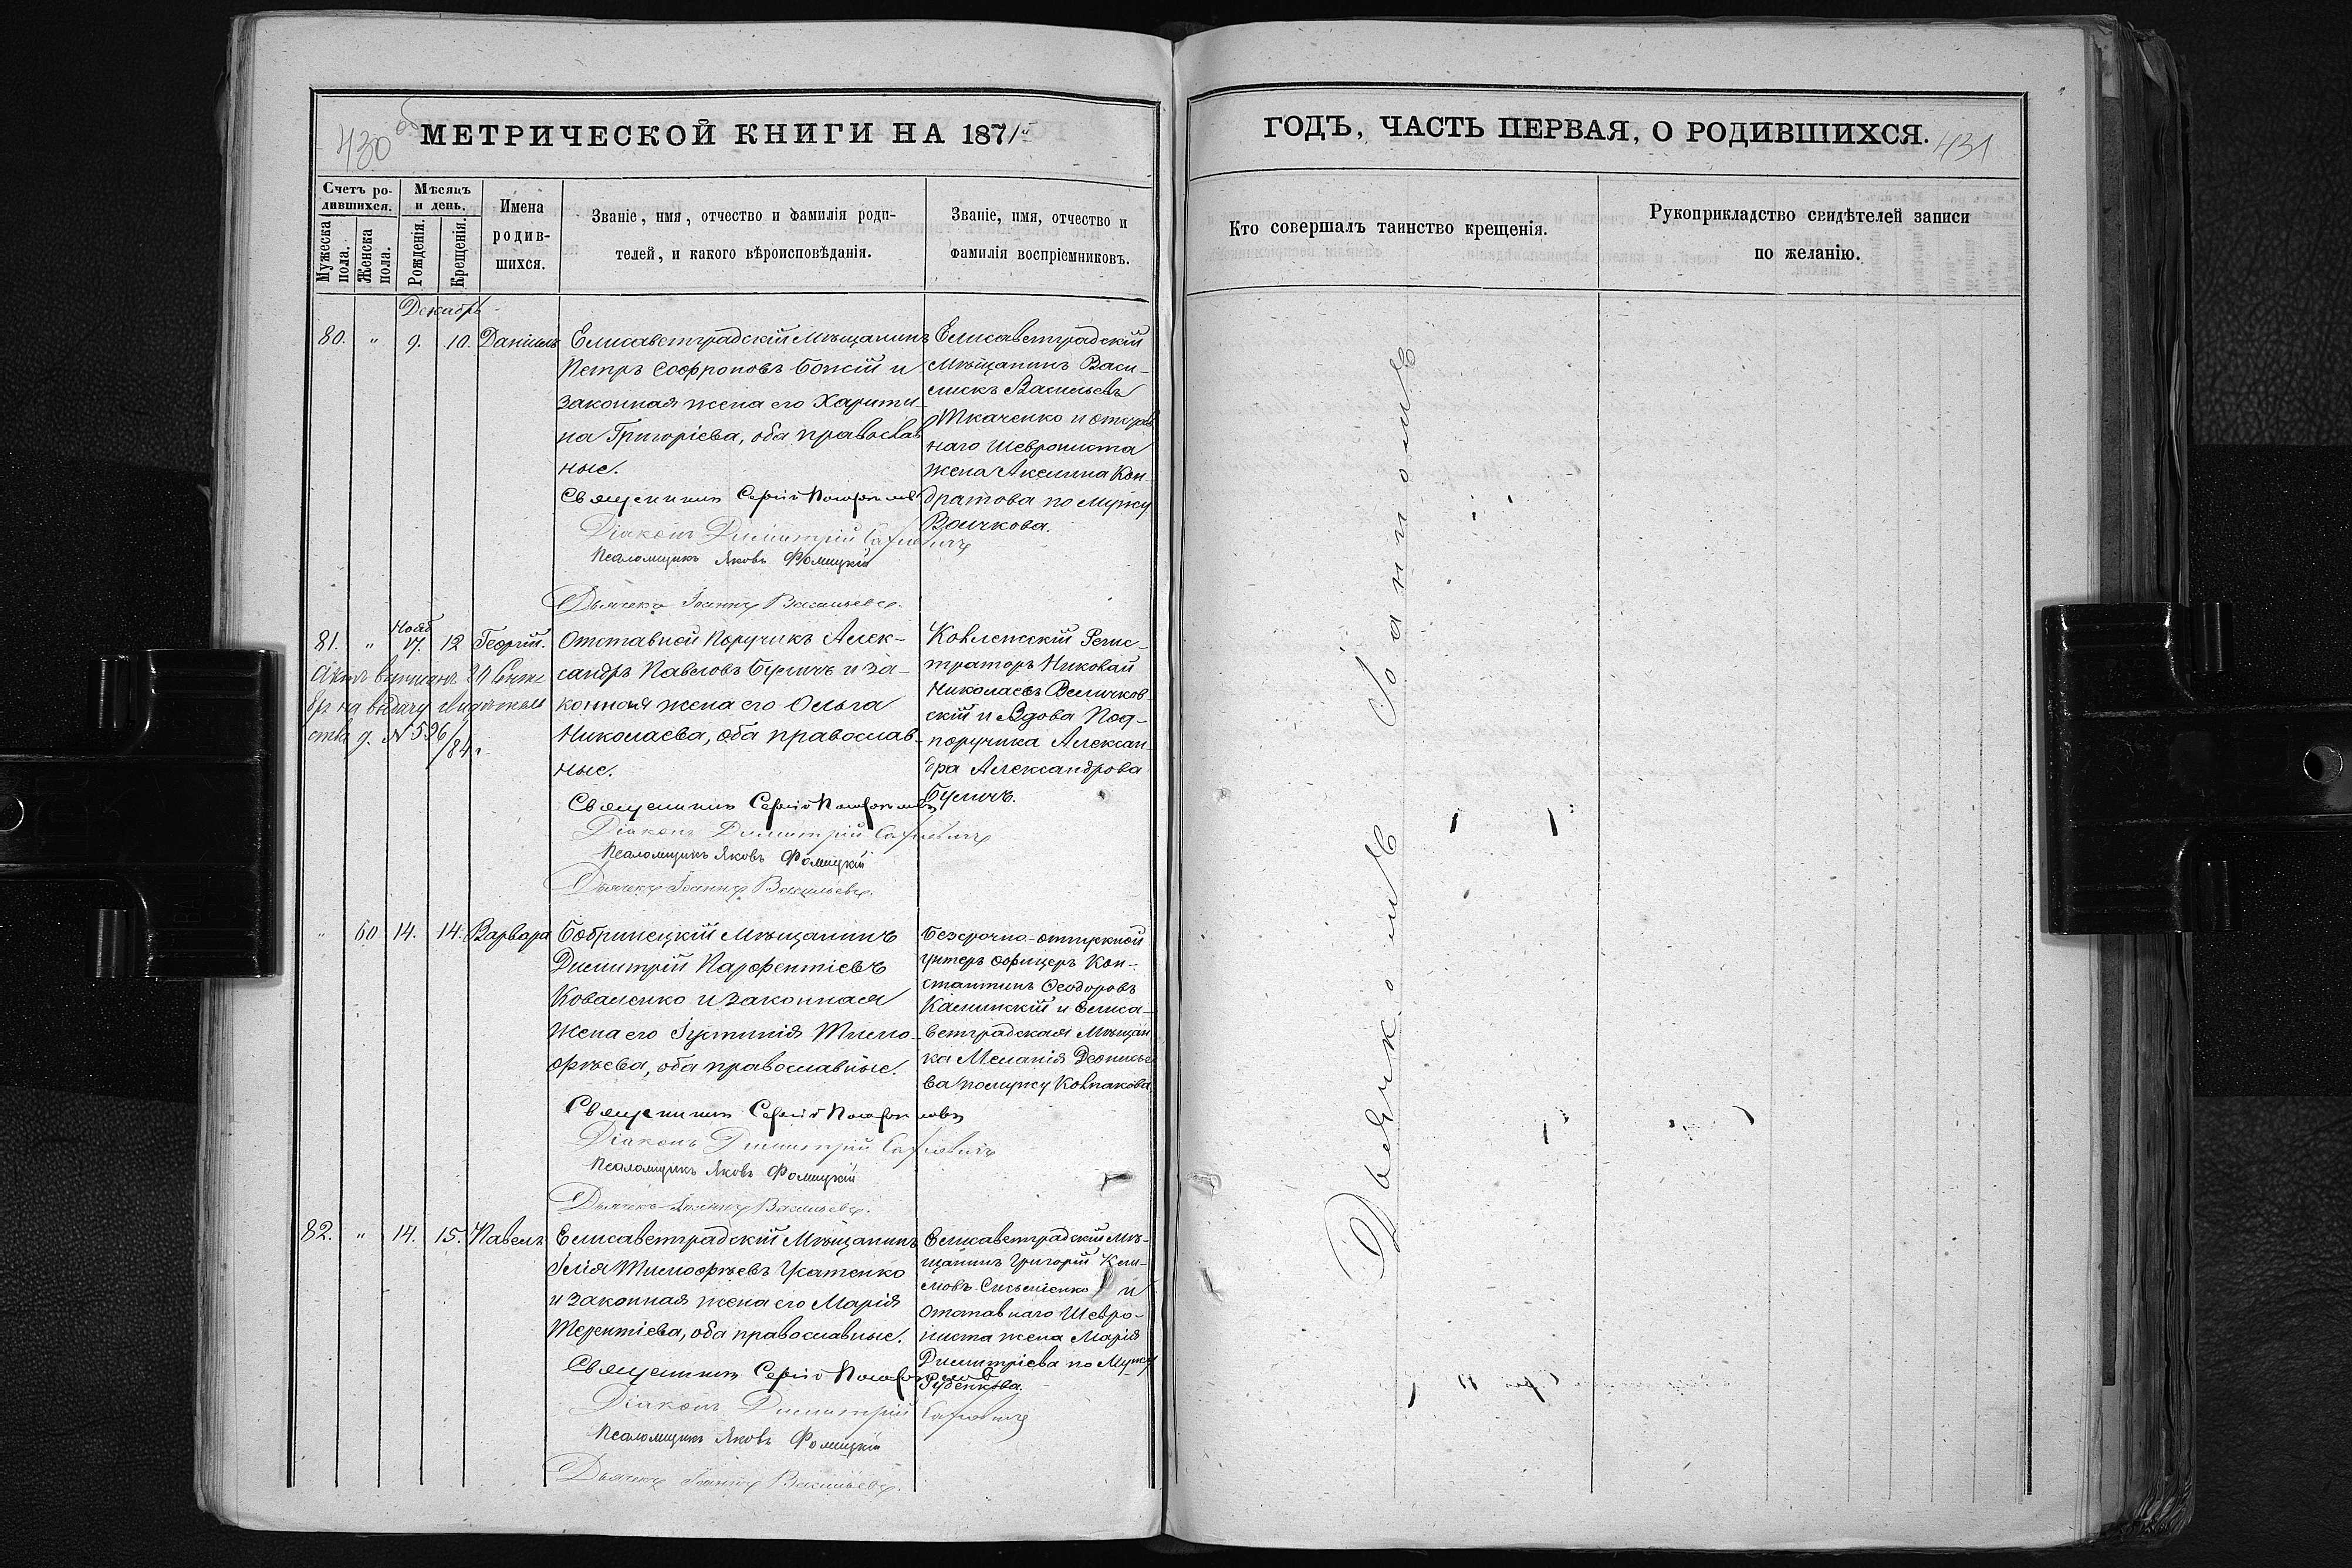 430 об
МЕТРИЧЕСКОЙ КНИГИ НА 1871й
Счетъ ро-
дившихся.
Мѣсяцъ
и день.
Мужеска
пола.
Женска
пола.
Рожденія.
Крещенія.
Имена
родив-
шихся.
Званіе, имя, отчество и фамилія роди-
телей, и какого вѣроисповѣданія.
Званіе, имя, отчество и
фамилія воспріемниковъ.
Декабрь
80. " 9. 10. Даніилъ
Елисаветградскій Мѣщанинъ
Петръ Софроновъ Божій и
законная жена его Харити-
на Григоріева, оба православ
ные.
Священникъ Сергій
Діаконъ Димитрій
Псаломщикъ Яковъ Фомицкій
Дьячекъ Іоаннъ Васильевъ.
Елисаветградскій
Мѣщанинъ Васи-
лискъ Васильевъ
Ткаченко и отстав
наго Шеврониста
жена Акелина Кон-
дратова по мужу
Волчкова.
81. " Нояб 17. 12 Георгій.
№ 526/84 г.
Отставной Поручикъ Алек-
сандръ Павловъ Буличъ и за-
конная жена его Ольга
Николаева, оба православ-
ные.
Священникъ Сергій
Діаконъ Димитрій
Псаломщикъ Яковъ Фомицкій
Дьячекъ Іоаннъ Васильевъ.
Коллежскій Регис-
траторъ Николай
Николаевъ Величков-
скій и Вдова Под-
поручика Алексан-
дра Александрова
Буличъ.
" 60 14. 14. Варвара
Бобринецкій Мѣщанинъ
Димитрій Парфентіевъ
Коваленко и законная
жена его Іустинія Тимо-
фѣева, оба православные.
Священникъ Сергій
Діаконъ Димитрій
Псаломщикъ Яковъ Фомицкій
Дьячекъ Іоаннъ Васильевъ.
Безсрочно-отпускной
Унтеръ офицеръ Кон-
стантинъ Ѳеодоровъ
Калинскій и Елиса-
ветградская Мѣщан
ка Меланія Деонисье
ва по мужу Колпакова
82. " 14. 15. Павелъ
Елисаветградскій Мѣщанинъ
Илія Тимофѣевъ Усатенко
и законная жена его Марія
Терентіева, оба православные.
Священникъ Сергій
Діаконъ Димитрій
Псаломщикъ Яковъ Фомицкій
Дьячекъ Іоаннъ Васильевъ.
Елисаветградскій Мѣ-
щанинъ Григорій Кли-
мовъ и
Отставнаго Шевро-
ниста жена Марія
Димитріева по Мужу
Руденкова.
ГОДЪ, ЧАСТЬ ПЕРВАЯ, О РОДИВШИХСЯ.
431
Кто совершалъ таинство крещенія.
Рукоприкладство свидѣтелей записи
по желанію.
Дьячкомъ Іоанномъ